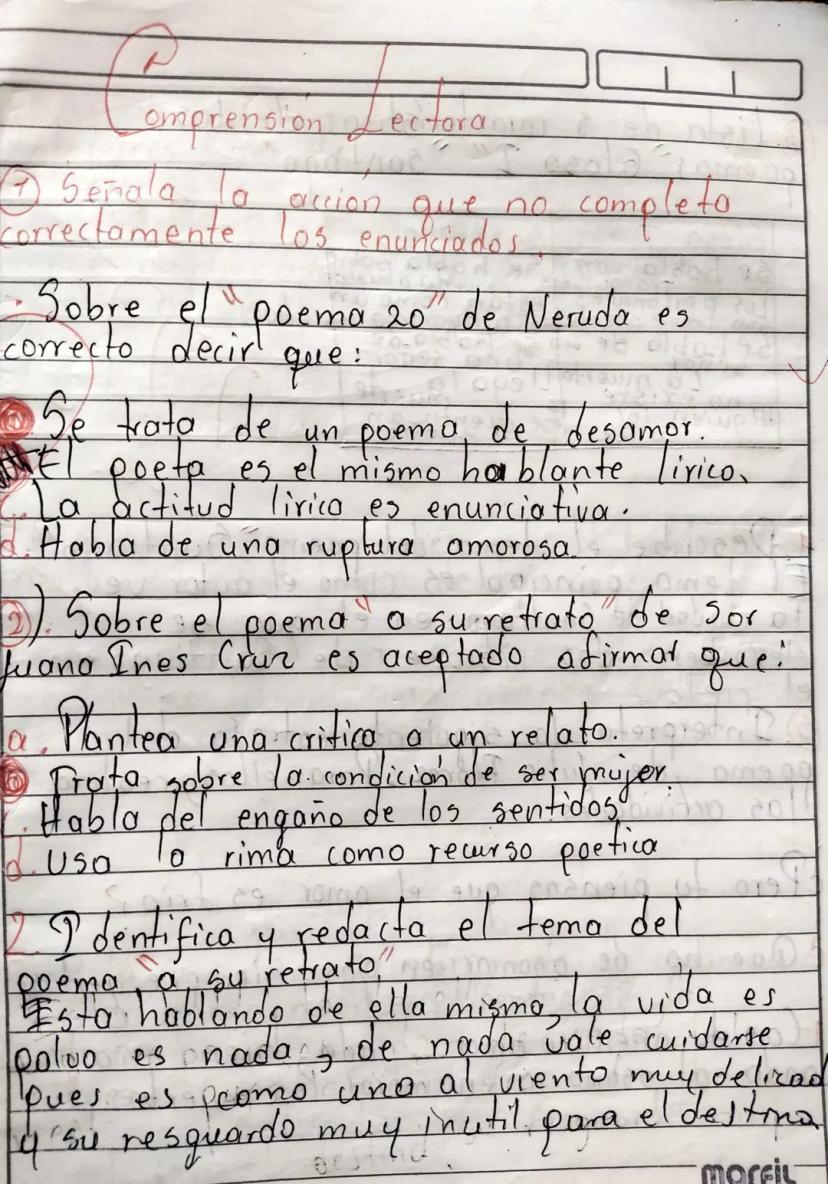 Comprension Lectora
1 Señala la accion que no completa
correctamente los enunciados.
. Sobre el "poema 20" de Neruda es
correcto decir que:
a Se trata de un poema de desamor.
El poeta es el mismo hablante lirico.
c. La actitud lirico es enunciativa.
d. Habla de una ruptura amorosa.
2). Sobre el poema "a su retrato" de Sor
Juana Ines Cruz es aceptado afirmar que:
a. Plantea una critica a un relato.
b Trata sobre la condición de ser mujer.
c. Habla del engaño de los sentidos
d. Usa la rima como recurso poetica
2. Identifica y redacta el tema del
poema "a su retrato"
Esta hablando de ella misma, la vida es
polvo es nada, de nada vale cuidarse
pues es como una al viento muy delicad
y su resguardo muy inutil para el destino
marfil